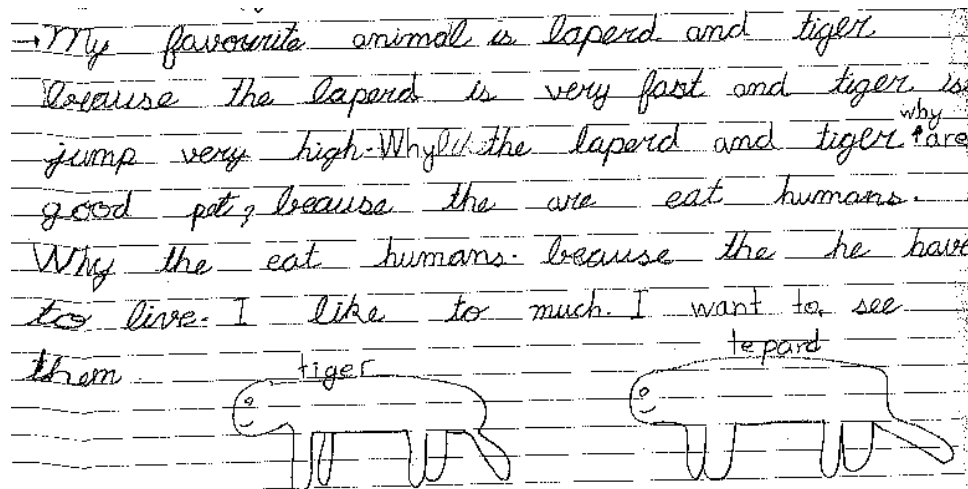 →My favourite animal is laperd and tiger
because the laperd is very fast and tiger is
why
jump very high. Why the laperd and tiger ↑are
good pet? beause the are eat humans.
Why the eat humans. beause the he have
to live. I like to much. I want to see
them.
tiger
tepard